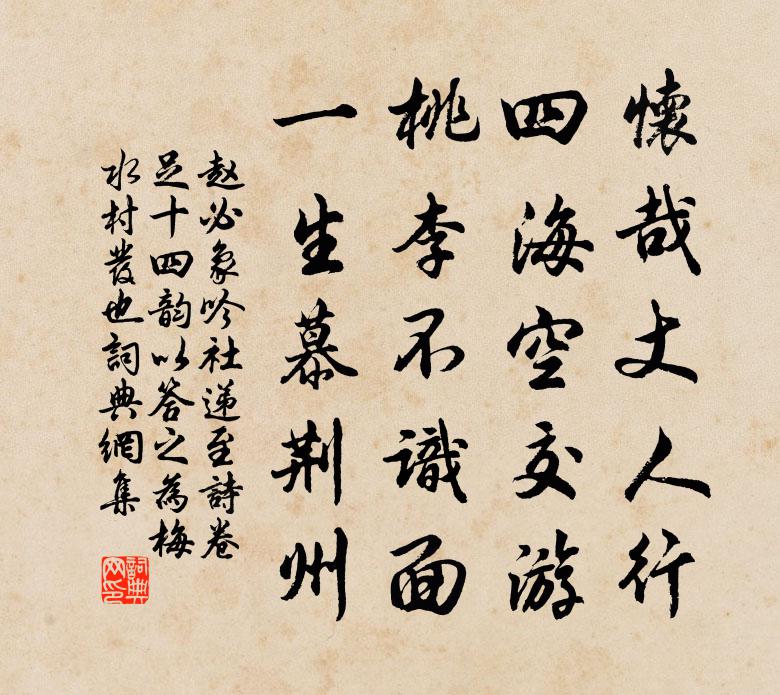 懷哉丈人行
四海空交游
桃李不識面
一生慕荆州
赵必象吟社递至詩卷
足十四韵以答之為梅
水村發也詞典網集
詞典
网印